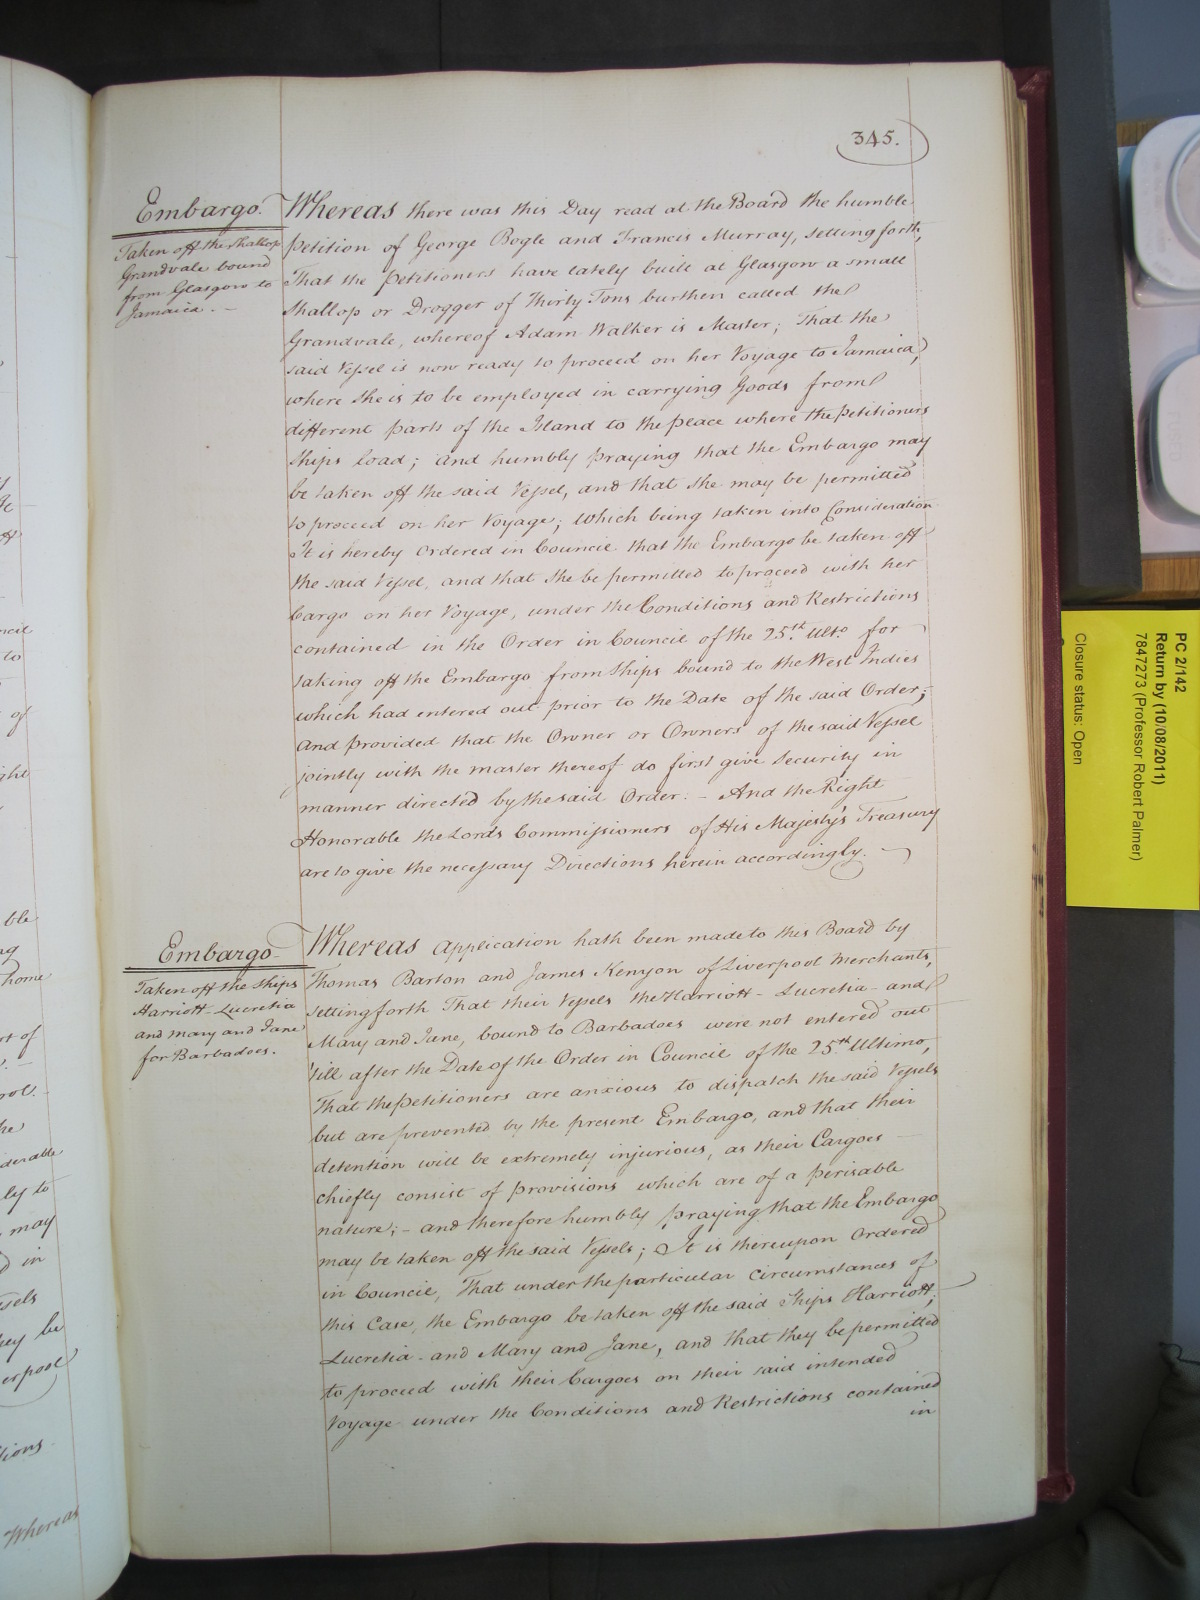 345.
Embargo.
Taken off the Shallop
Grandvale bound
from Glasgow to
Jamaica. -
Whereas there was this Day read at the Board the humble
Petition of George Bogle and Francis Murray, setting forth,
That the Petitioners have lately built at Glasgow a small
Shallop or Drogger of Thirty Tons burthen called the
Grandvale, whereof Adam Walker is Master; That the
said Vessel is now ready to proceed on her Voyage to Jamaica,
where She is to be employed in carrying Goods from
different parts of the Island to the place where the Petitioners
Ships load; and humbly praying that the Embargo may
be taken off the said Vessel, and that She may be permitted
to proceed on her Voyage; Which being taken into Consideration
It is hereby Ordered in Council that the Embargo be taken off
the said Vessel, and that She be permitted to proceed with her
Cargo on her Voyage, under the Conditions and Restrictions
contained in the Order in Council of the 25th. Ulto. for
taking off the Embargo from Ships bound to the West Indies
which had entered out prior to the Date of the said Order;
And provided that the Owner or Owners of the said Vessel
jointly with the Master thereof do first give Security in
manner directed by the said Order. - And the Right
Honorable the Lords Commissioners of His Majesty's Treasury
are to give the necessary Directions herein accordingly.
Embargo
Taken off the Ships
Harriott - Lucretia
and Mary and Jane
for Barbadoes.
Whereas Application hath been made to this Board by
Thomas Barton and James Kenyon of Liverpool Merchants,
setting forth That their Vessels the Harriott - Lucretia - and
Mary and Jane, bound to Barbadoes were not entered out
till after the Date of the Order in Council of the 25th. Ultimo,
That the Petitioners are anxious to dispatch the said Vessels
but are prevented by the present Embargo, and that their
detention will be extremely injurious, as their Cargoes
chiefly consist of Provisions which are of a perisable
nature; - and therefore humbly praying that the Embargo
may be taken off the said Vessels; It is thereupon Ordered
in Council, That under the particular circumstances of
this Case, the Embargo be taken off the said Ships Harriott,
Lucretia - and Mary and Jane, and that they be permitted
to proceed with their Cargoes on their said intended
Voyage under the Conditions and Restrictions contained
in
ble
home
rt of
ly to
may
in
they be
Whereas
PC 2/142
Return by (10/08/2011)
7847273 (Professor Robert Palmer)
Closure status: Open